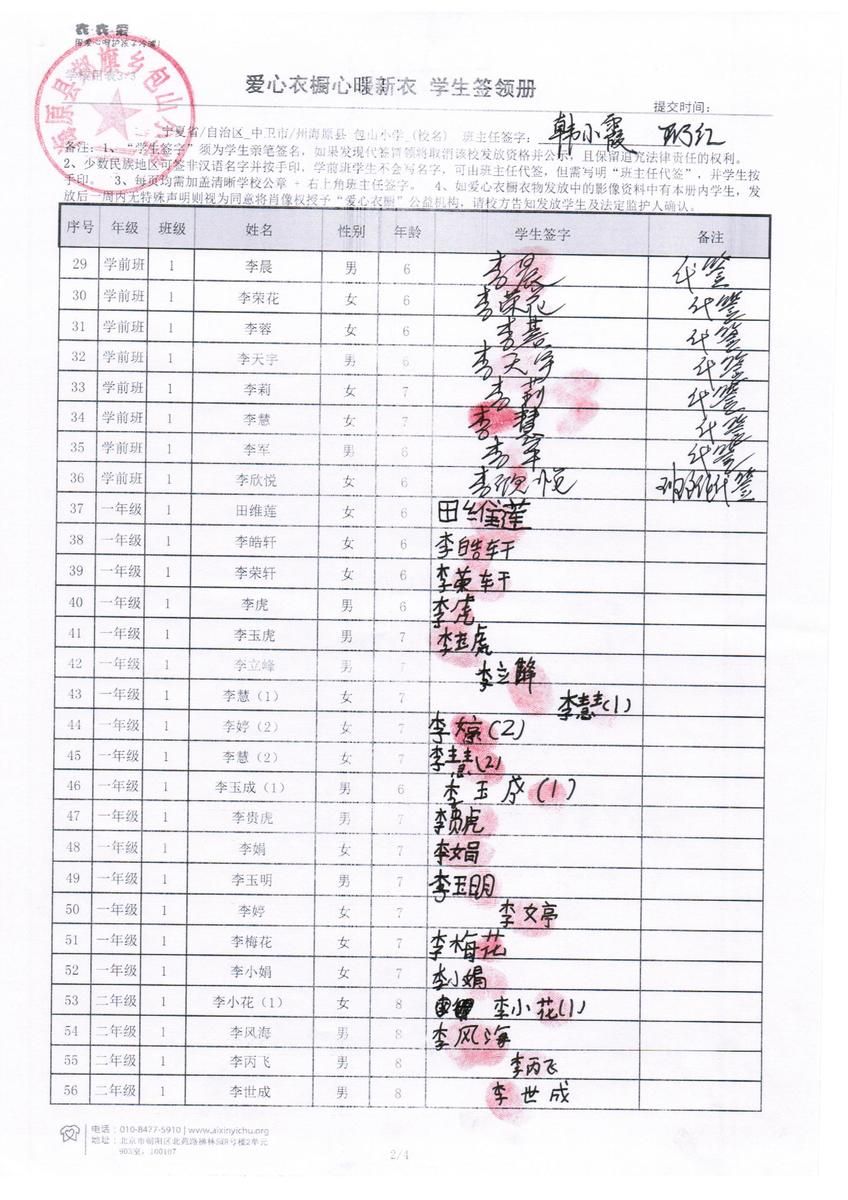 衣·衣·爱
用爱心呵护孩子冷暖!
爱心衣橱心暖新衣 学生签领册
提交时间:
宁夏省/自治区 中卫市/州海原县 包山小学 (校名) 班主任签字: 韩小霞
备注: 1、“学生签字”须为学生亲笔签名,如果发现代签冒领将取消该校发放资格并公示,且保留追究法律责任的权利。
2、少数民族地区可签非汉语名字并按手印,学前班学生不会写名字,可由班主任代签,但需写明“班主任代签”,并学生按
手印。 3、每页均需加盖清晰学校公章 + 右上角班主任签字。 4、如爱心衣橱衣物发放中的影像资料中有本册内学生,发
放后一周内无特殊声明则视为同意将肖像权授予“爱心衣橱”公益机构,请校方告知发放学生及法定监护人确认。
序号 年级 班级 姓名 性别 年龄 学生签字 备注
29 学前班 1 李晨 男 6 李晨 代签
30 学前班 1 李荣花 女 6 李荣花 代签
31 学前班 1 李蓉 女 6 代签
32 学前班 1 李天宇 男 6 李天宇 代签
33 学前班 1 李莉 女 7 李莉 代签
34 学前班 1 李慧 女 7 李慧 代签
35 学前班 1 李军 男 6 李军 代签
36 学前班 1 李欣悦 女 6 代签
37 一年级 1 田维莲 女 6 田维莲
38 一年级 1 李皓轩 女 6 李皓轩
39 一年级 1 李荣轩 女 6 李荣轩
40 一年级 1 李虎 男 6 李虎
41 一年级 1 李玉虎 男 7 李玉虎
42 一年级 1 李立峰 男 7 李立峰
43 一年级 1 李慧(1) 女 7 李慧(1)
44 一年级 1 李婷(2) 女 7 李婷(2)
45 一年级 1 李慧(2) 女 7 李慧(2)
46 一年级 1 李玉成(1) 男 6 李玉成(1)
47 一年级 1 李贵虎 男 7 李贵虎
48 一年级 1 李娟 女 7 李娟
49 一年级 1 李玉明 男 7 李玉明
50 一年级 1 李婷 女 7 李婷
51 一年级 1 李梅花 女 7 李梅花
52 一年级 1 李小娟 女 7 李小娟
53 二年级 1 李小花(1) 女 8 李小花(1)
54 二年级 1 李风海 男 8 李风海
55 二年级 1 李丙飞 男 8 李丙飞
56 二年级 1 李世成 男 8 李世成
电话:010-8477-5910 | www.aixinyichu.org
地址:北京市朝阳区北苑路拂林园8号楼2单元
903室,100107
2/4